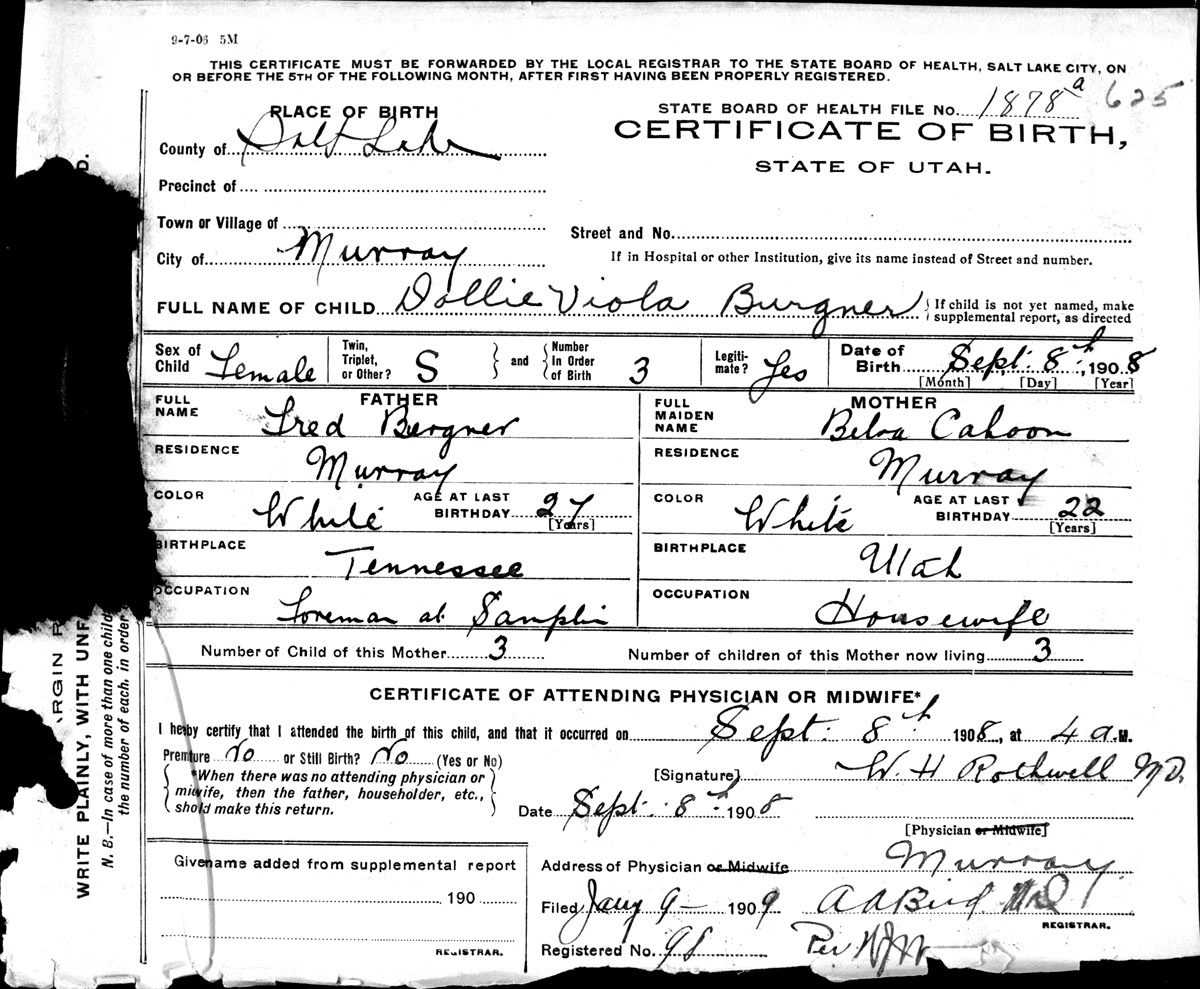 9-7-06 5M
THIS CERTIFICATE MUST BE FORWARDED BY THE LOCAL REGISTRAR TO THE STATE BOARD OF HEALTH, SALT LAKE CITY, ON
OR BEFORE THE 5TH OF THE FOLLOWING MONTH, AFTER FIRST HAVING BEEN PROPERLY REGISTERED.
PLACE OF BIRTH
STATE BOARD OF HEALTH FILE No. 1878 a 625
CERTIFICATE OF BIRTH,
STATE OF UTAH.
County of Salt Lake
Precinct of
Town or Village of
Street and No.
City of Murray
If in Hospital or other Institution, give its name instead of Street and number.
FULL NAME OF CHILD Dollie Viola Burgner { If child is not yet named, make supplemental report, as directed
Sex of Child Female Twin, Triplet, or Other? S } and { Number In Order of Birth 3 Legiti-mate? Yes Date of Birth Sept. 8th, 1908
[Month] [Day] [Year]
FATHER
MOTHER
FULL NAME Fred Burgner
FULL MAIDEN NAME Belva Cahoon
RESIDENCE Murray
RESIDENCE Murray
COLOR White AGE AT LAST BIRTHDAY 27 [Years]
COLOR White AGE AT LAST BIRTHDAY 22 [Years]
BIRTHPLACE Tennessee
BIRTHPLACE Utah
OCCUPATION Foreman at Samplin
OCCUPATION Housewife
Number of Child of this Mother 3
Number of children of this Mother now living 3
CERTIFICATE OF ATTENDING PHYSICIAN OR MIDWIFE*
I hereby certify that I attended the birth of this child, and that it occurred on Sept. 8th 1908, at 4 a.M.
Premture No or Still Birth? No (Yes or No)
{ *When there was no attending physician or midwife, then the father, householder, etc., shold make this return. }
[Signature] W. H Rothwell M.D.
Date Sept. 8th 1908
[Physician or Midwife]
Given name added from supplemental report
190
REGISTRAR.
Address of Physician or Midwife Murray.
Filed Jany 9- 1909 A A Bird MD
REGISTRAR.
Registered No. 98 Per
ARGIN R
WRITE PLAINLY, WITH UNF
N. B.—In case of more than one child
the number of each, in order
D.